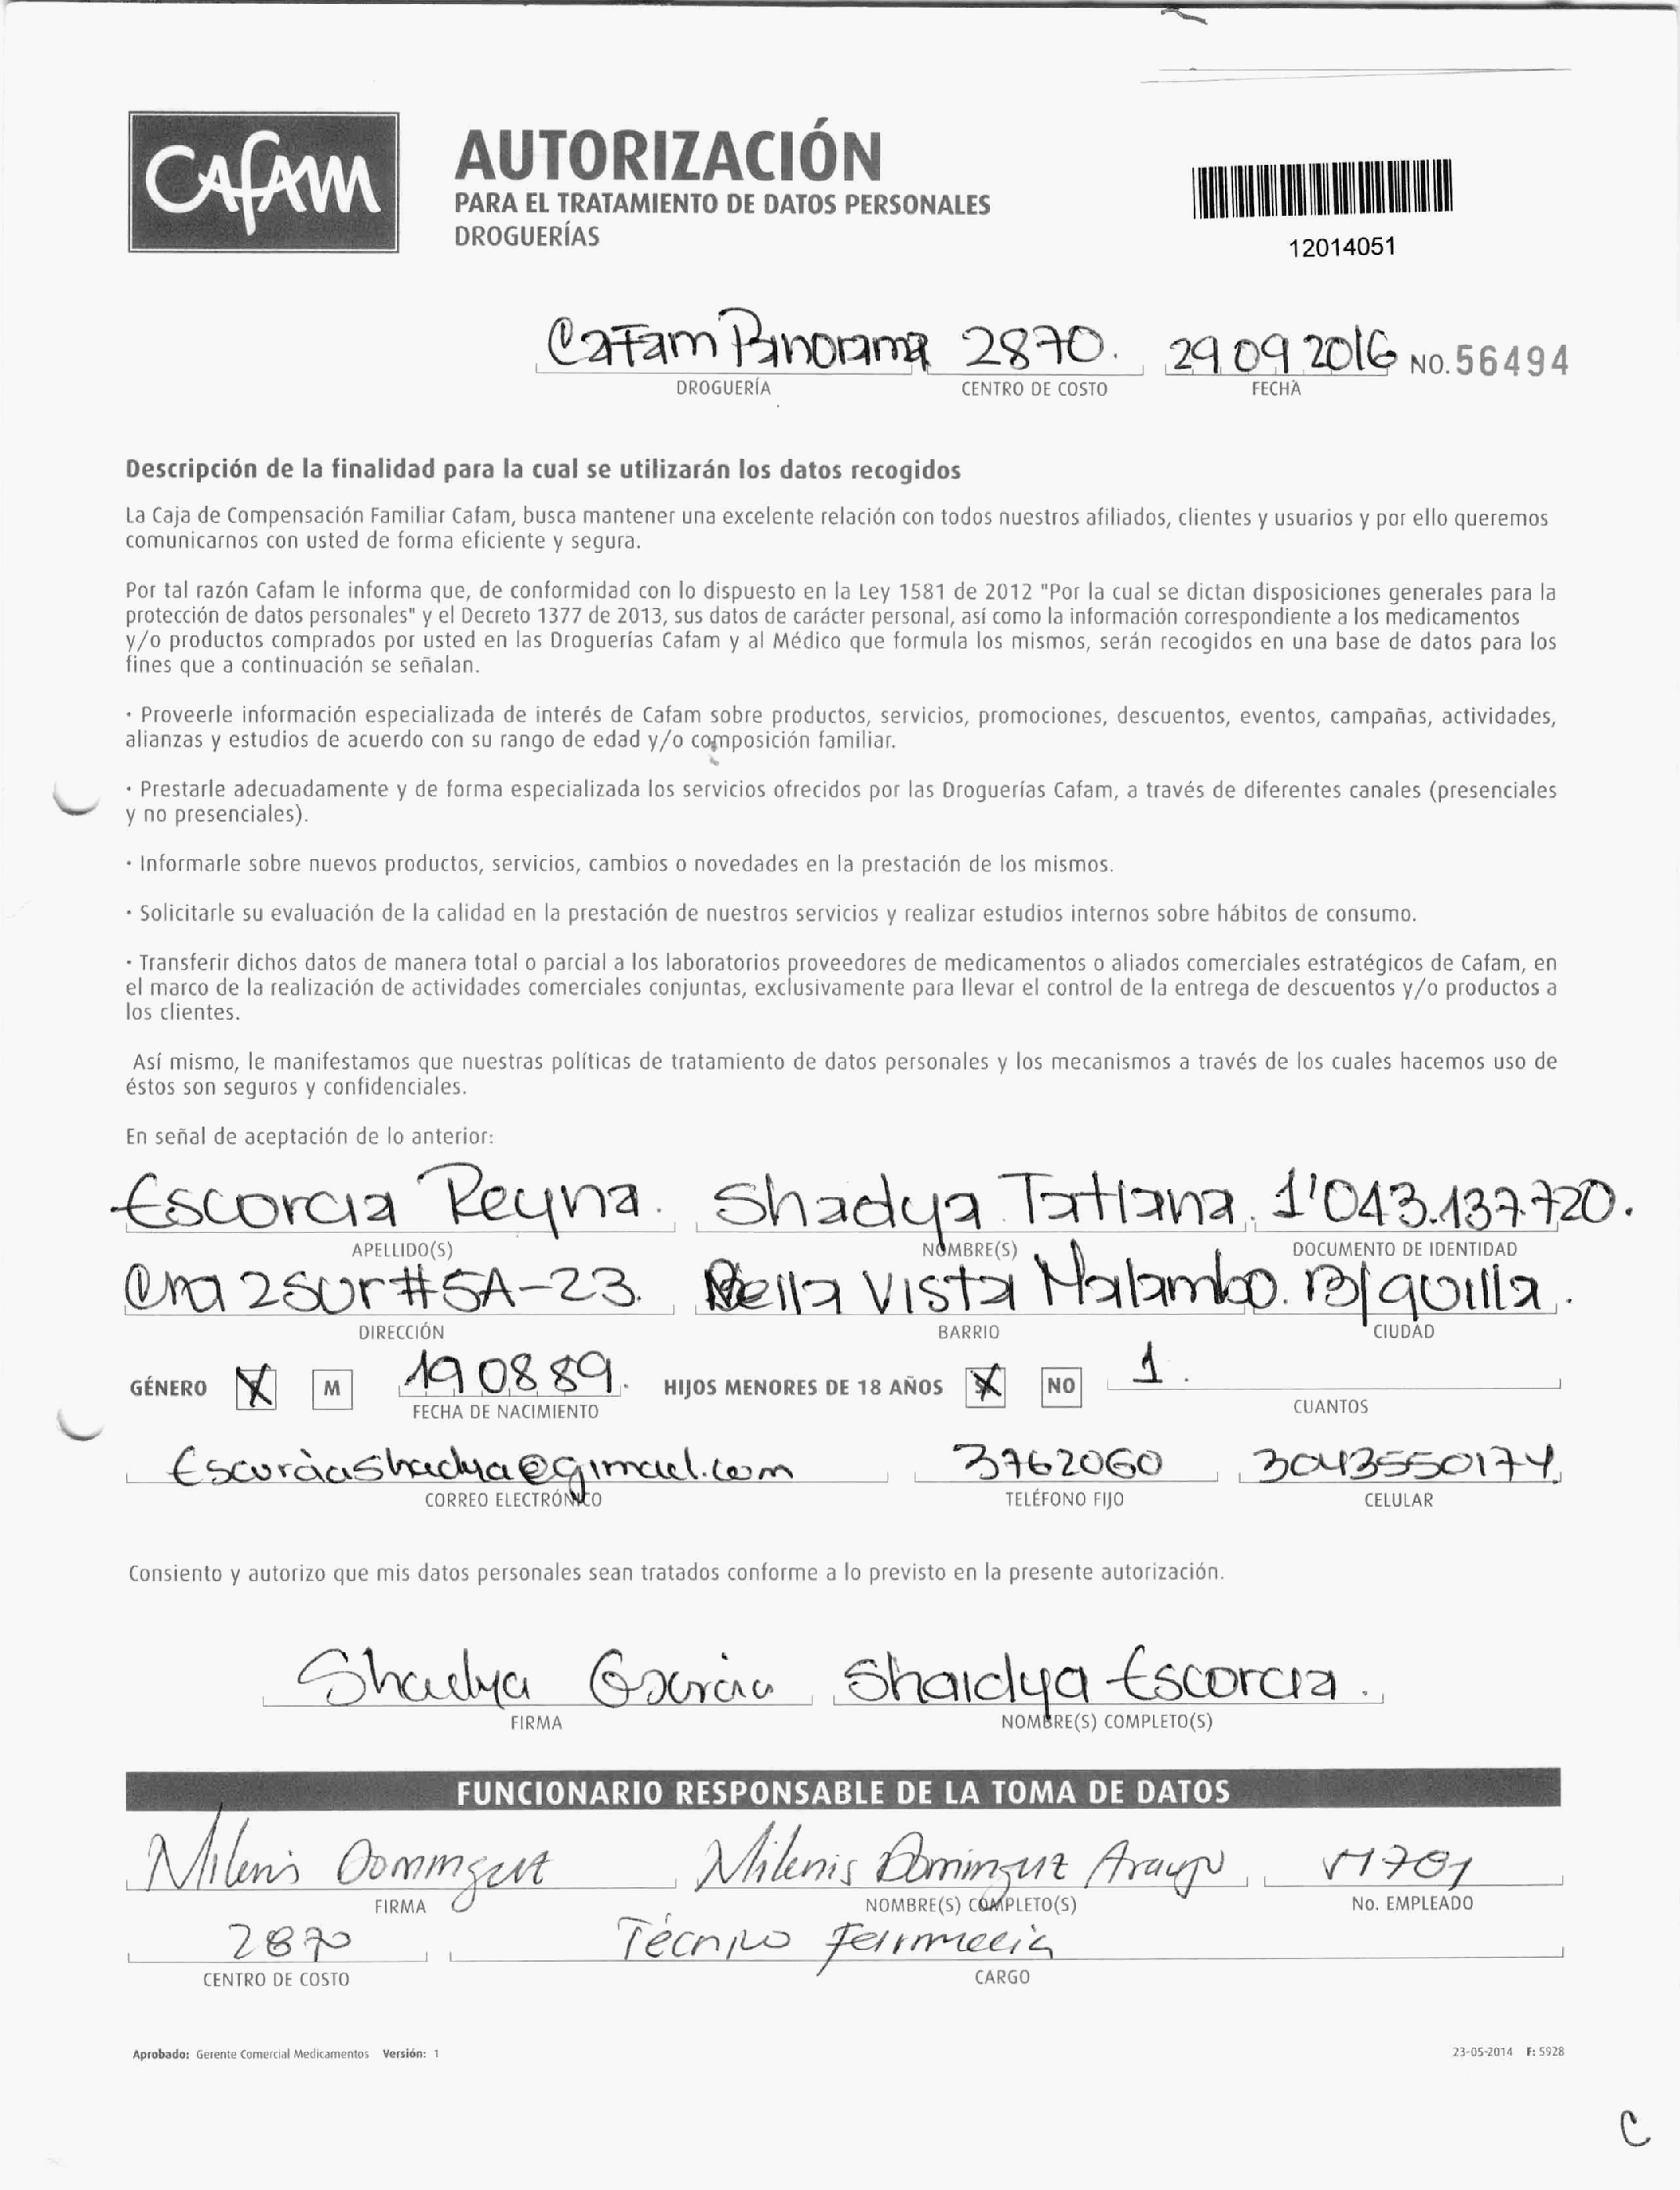 CAFAM
AUTORIZACIÓN
PARA EL TRATAMIENTO DE DATOS PERSONALES
DROGUERÍAS
12014051
Cafam Panorama 2870. 29 09 2016 NO. 56494
DROGUERÍA CENTRO DE COSTO FECHA
Descripción de la finalidad para la cual se utilizarán los datos recogidos
La Caja de Compensación Familiar Cafam, busca mantener una excelente relación con todos nuestros afiliados, clientes y usuarios y por ello queremos
comunicarnos con usted de forma eficiente y segura.
Por tal razón Cafam le informa que, de conformidad con lo dispuesto en la Ley 1581 de 2012 "Por la cual se dictan disposiciones generales para la
protección de datos personales" y el Decreto 1377 de 2013, sus datos de carácter personal, así como la información correspondiente a los medicamentos
y/o productos comprados por usted en las Droguerías Cafam y al Médico que formula los mismos, serán recogidos en una base de datos para los
fines que a continuación se señalan.
· Proveerle información especializada de interés de Cafam sobre productos, servicios, promociones, descuentos, eventos, campañas, actividades,
alianzas y estudios de acuerdo con su rango de edad y/o composición familiar.
· Prestarle adecuadamente y de forma especializada los servicios ofrecidos por las Droguerías Cafam, a través de diferentes canales (presenciales
y no presenciales).
· Informarle sobre nuevos productos, servicios, cambios o novedades en la prestación de los mismos.
· Solicitarle su evaluación de la calidad en la prestación de nuestros servicios y realizar estudios internos sobre hábitos de consumo.
· Transferir dichos datos de manera total o parcial a los laboratorios proveedores de medicamentos o aliados comerciales estratégicos de Cafam, en
el marco de la realización de actividades comerciales conjuntas, exclusivamente para llevar el control de la entrega de descuentos y/o productos a
los clientes.
Así mismo, le manifestamos que nuestras políticas de tratamiento de datos personales y los mecanismos a través de los cuales hacemos uso de
éstos son seguros y confidenciales.
En señal de aceptación de lo anterior:
Escorcia Reyna. Shadya Tatiana. 1'043.137.720.
APELLIDO(S) NOMBRE(S) DOCUMENTO DE IDENTIDAD
Cra 2Sur#5A-23. Bella Vista Malambo. B/quilla.
DIRECCIÓN BARRIO CIUDAD
GÉNERO X M 19 08 89. HIJOS MENORES DE 18 AÑOS X NO 1.
FECHA DE NACIMIENTO CUANTOS
Escorciashadya@gimael.com 3762060 3043550174.
CORREO ELECTRÓNICO TELÉFONO FIJO CELULAR
Consiento y autorizo que mis datos personales sean tratados conforme a lo previsto en la presente autorización.
Shadya Escorcia Shaidya Escorcia.
FIRMA NOMBRE(S) COMPLETO(S)
FUNCIONARIO RESPONSABLE DE LA TOMA DE DATOS
Milenis Dominguez Milenis Dominguez Araujo 11701
FIRMA NOMBRE(S) COMPLETO(S) No. EMPLEADO
2870 Técnico Farmacia
CENTRO DE COSTO CARGO
Aprobado: Gerente Comercial Medicamentos Versión: 1 23-05-2014 F: 5928
C